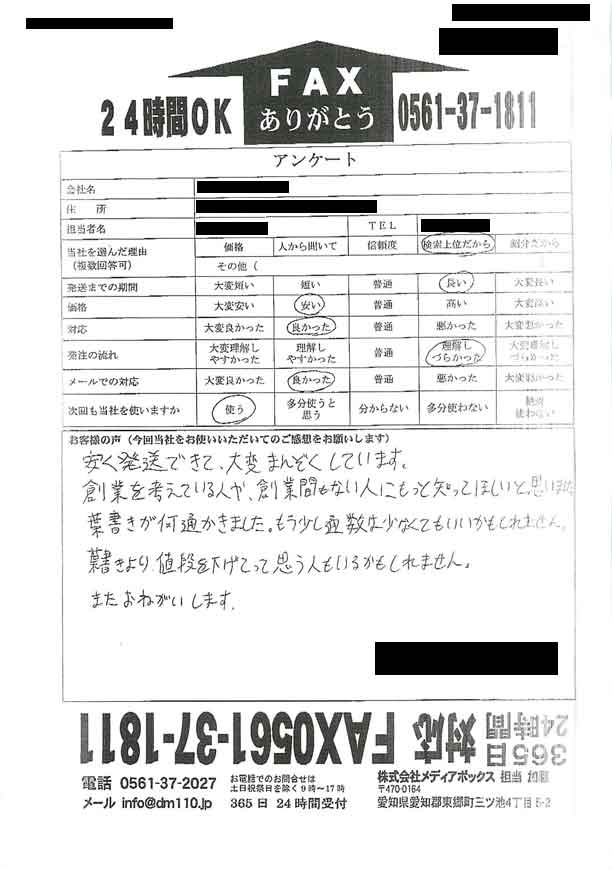 FAX
ありがとう
24時間OK
0561-37-1811
アンケート
会社名
住 所
担当者名 TEL
当社を選んだ理由（複数回答可） 価格 人から聞いて 信頼度 検索上位だから 割引だから
その他（
発送までの期間 大変短い 短い 普通 長い 大変長い
価格 大変安い 安い 普通 高い 大変高い
対応 大変良かった 良かった 普通 悪かった 大変悪かった
発注の流れ 大変理解しやすかった 理解しやすかった 普通 理解しづらかった 大変理解しづらかった
メールでの対応 大変良かった 良かった 普通 悪かった 大変悪かった
次回も当社を使いますか 使う 多分使うと思う 分からない 多分使わない 絶対使わない
お客様の声（今回当社をお使いいただいてのご感想をお願いします）
安く発送できて、大変まんぞくしています。
創業を考えている人や、創業間もない人にもっと知ってほしいと思いました
葉書きが何通かきました。もう少し通数は少なくてもいいかもしれません。
葉書きより、値段を下げてって思う人もいるかもしれません。
またおねがいします。
365日
24時間
対応 FAX0561-37-1811
電話 0561-37-2027
メール info@dm110.jp
お電話でのお問合せは
土日祝祭日を除く9時～17時
365日 24時間受付
株式会社メディアボックス 担当 加藤
〒470-0164
愛知県愛知郡東郷町三ツ池4丁目5-2